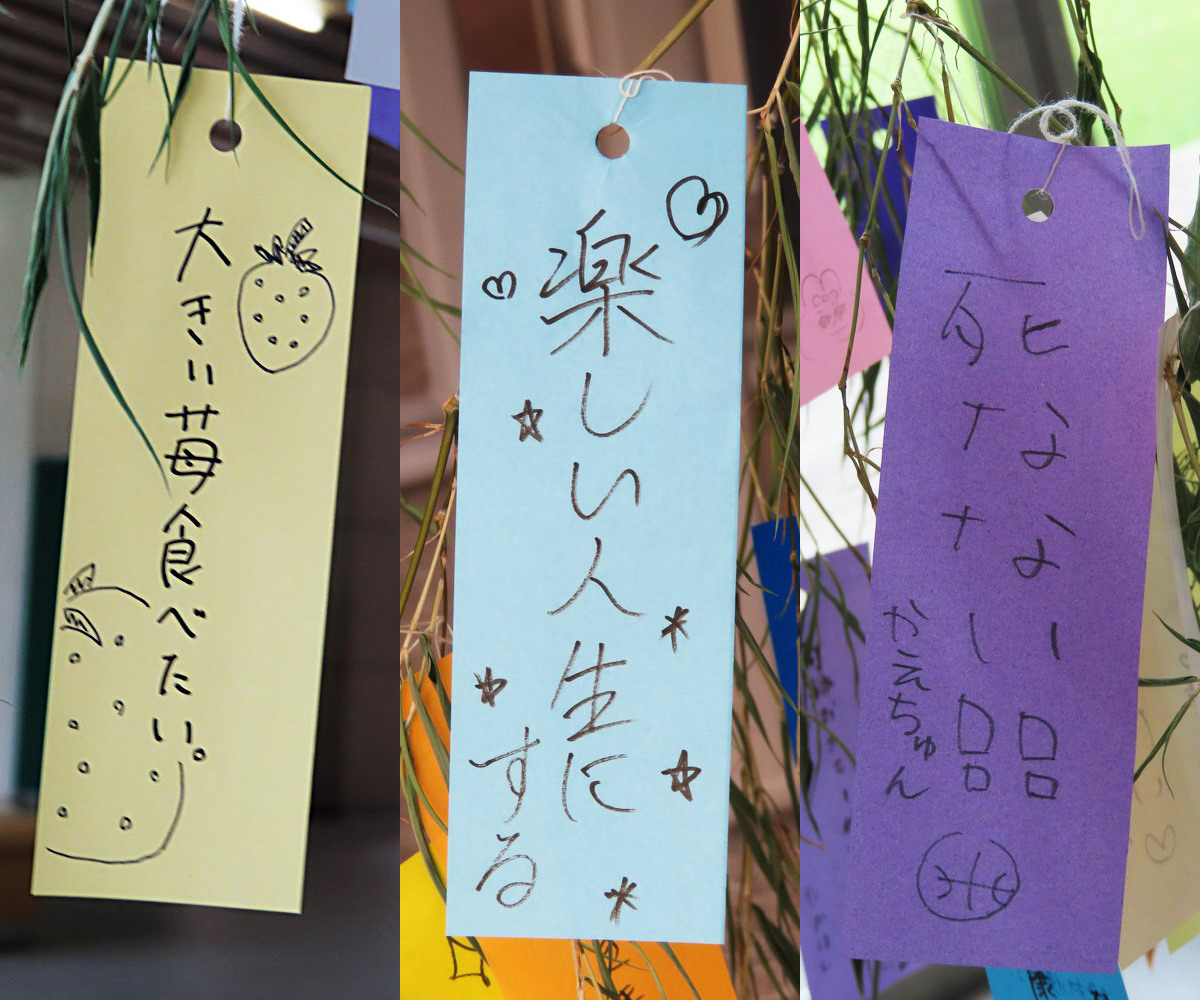 大きい苺食べたい。
楽しい人生に
する
死なない!!
かえちゅん